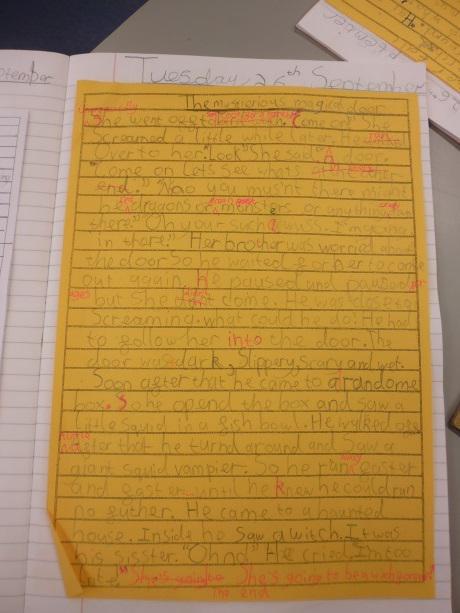 Tuesday 26th September
The mysterious magical door
She went "Come on" She
screamed a little while later. He ran
over to her. "Look" She said "A door.
Come on let's see whats at the other
end." "Nao you mus'nt there might
be dragons or monsters or anything in
there." "Oh your such a wuss. I'm going
in there." Her brother was worried about
the door so he waited for her to come
out again. he paused and paused for
ages but she didn't come. He was close to
screaming. what could he do! He had
to follow her into the door. The
door was dark, slippery, scary and wet.
Soon after that he came to a randome
box. So he opend the box and saw a
little squid in a fish bowl. He walked
after that he turnd around and saw a
giant squid vampier. So he ran away faster
and faster until he knew he could run
no futher. He came to a haunted
house. Inside he saw a witch. It was
his sisster. "Oh no" He cried. I'm too
late" She's going to She's going to be a witch
The end